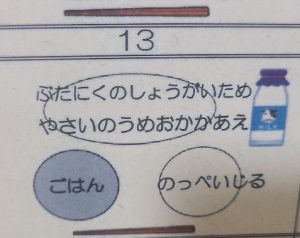 13
ぶたにくのしょうがいため
やさいのうめおかかあえ
MILK
ごはん
のっぺいじる